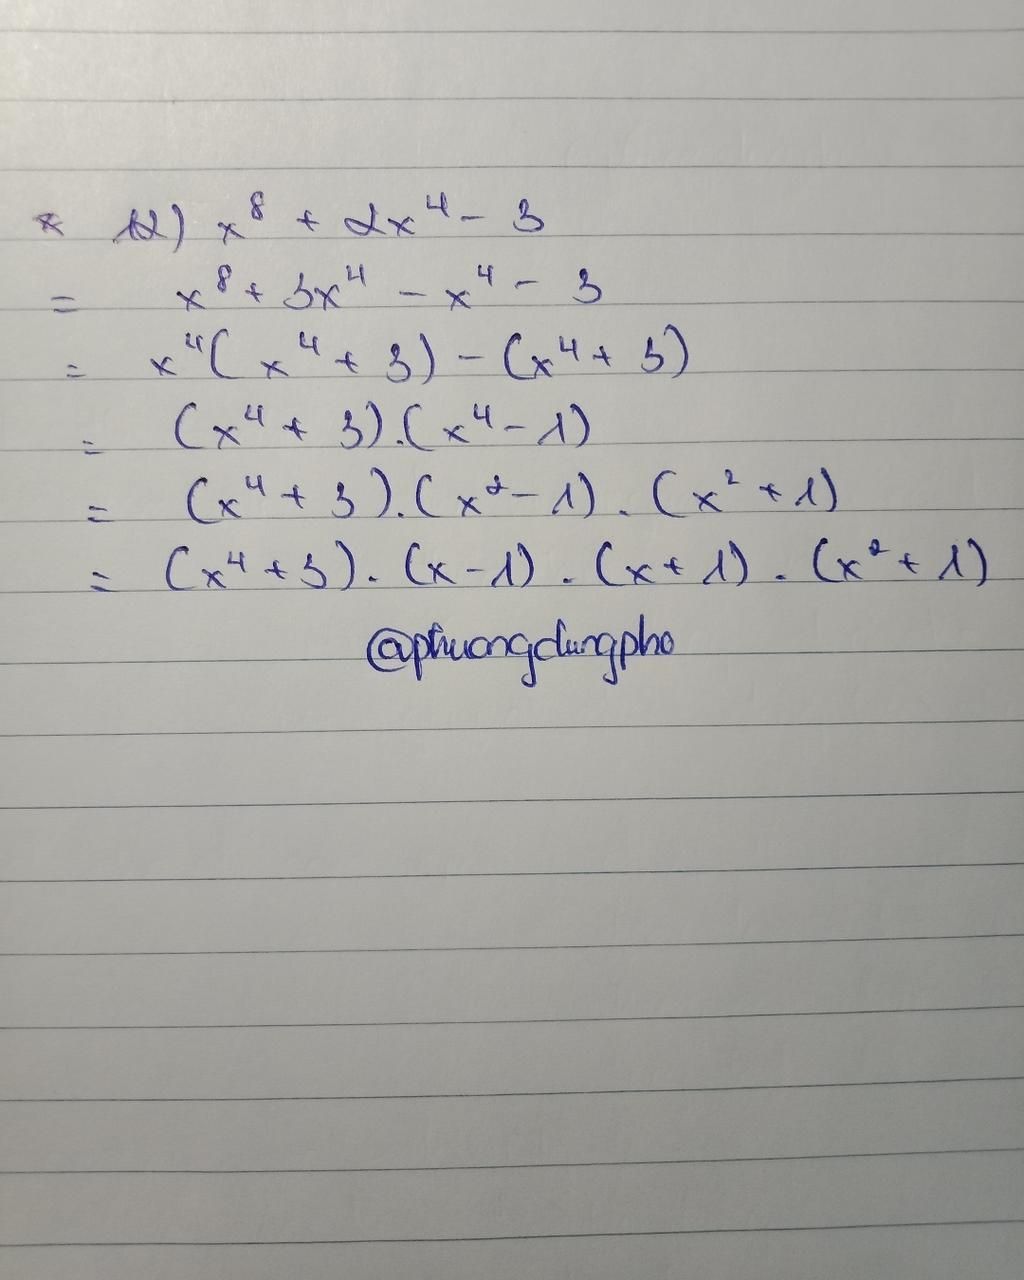 * 12) x⁸ + 2x⁴ - 3
= x⁸ + 3x⁴ - x⁴ - 3
= x⁴( x⁴ + 3) - (x⁴ + 3)
= (x⁴ + 3).(x⁴ - 1)
= (x⁴ + 3).(x² - 1) . (x² + 1)
= (x⁴ + 3) . (x - 1) . (x + 1) . (x² + 1)
@phuongdungpho